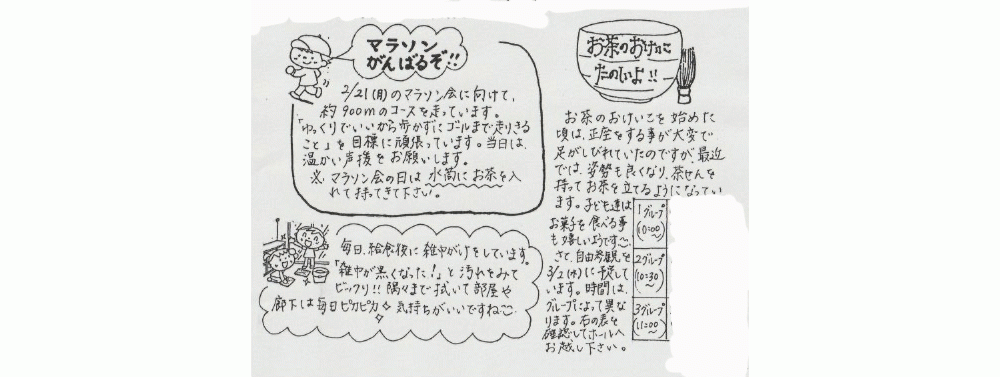 マラソン
がんばるぞ!!
2/21(月)のマラソン会に向けて、
約900mのコースを走っています。
「ゆっくりでいいから歩かずにゴールまで走りきる
こと」を目標に頑張っています。当日は、
温かい声援をお願いします。
※マラソン会の日は水筒にお茶を入
れて持ってきて下さい。
毎日、給食後に雑巾がけをしています。
「雑巾が黒くなった!」と汚れをみて
ビックリ!!隅々まで拭いて部屋や
廊下は毎日ピカピカ 気持ちがいいですね
お茶のおけいこ
たのしいよ!!
お茶のおけいこを始めた
頃は、正座をする事が大変で
足がしびれていたのですが最近
では、姿勢も良くなり、茶せんを
持ってお茶を立てるようになってい
ます。子ども達は
お菓子を食べる事
も嬉しいようです
さて、自由参観を
3/2(水)に予定して
います。時間は、
グループによって異な
ります。右の表を
確認してホールへ
お越し下さい。
1グループ
(10:00〜)
2グループ
(10:30〜)
3グループ
(11:00〜)